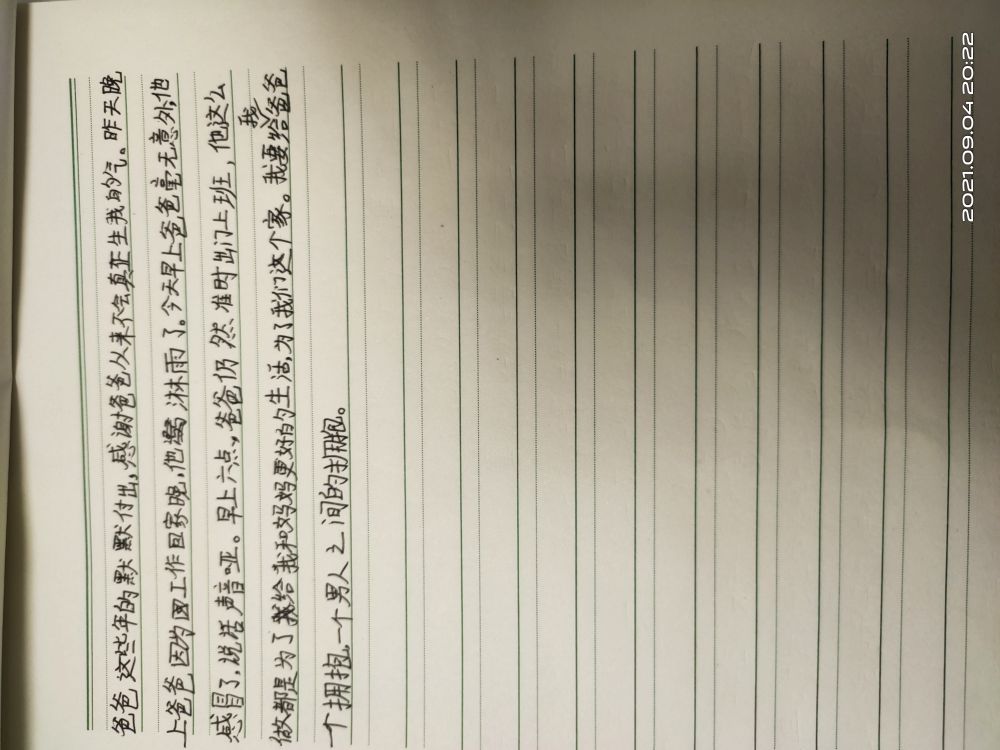 爸爸这些年的默默付出,感谢爸爸从来不会真正生我的气。昨天晚
上爸爸因为工作回家晚,他淋雨了。今天早上爸爸毫无意外,他
感冒了,说话声音哑。早上六点,爸爸仍然准时出门上班,他这么
做都是为了给我和妈妈更好的生活,为了我们这个家。我要给我爸爸
一个拥抱,一个男人之间的拥抱。
2021.09.04 20:22